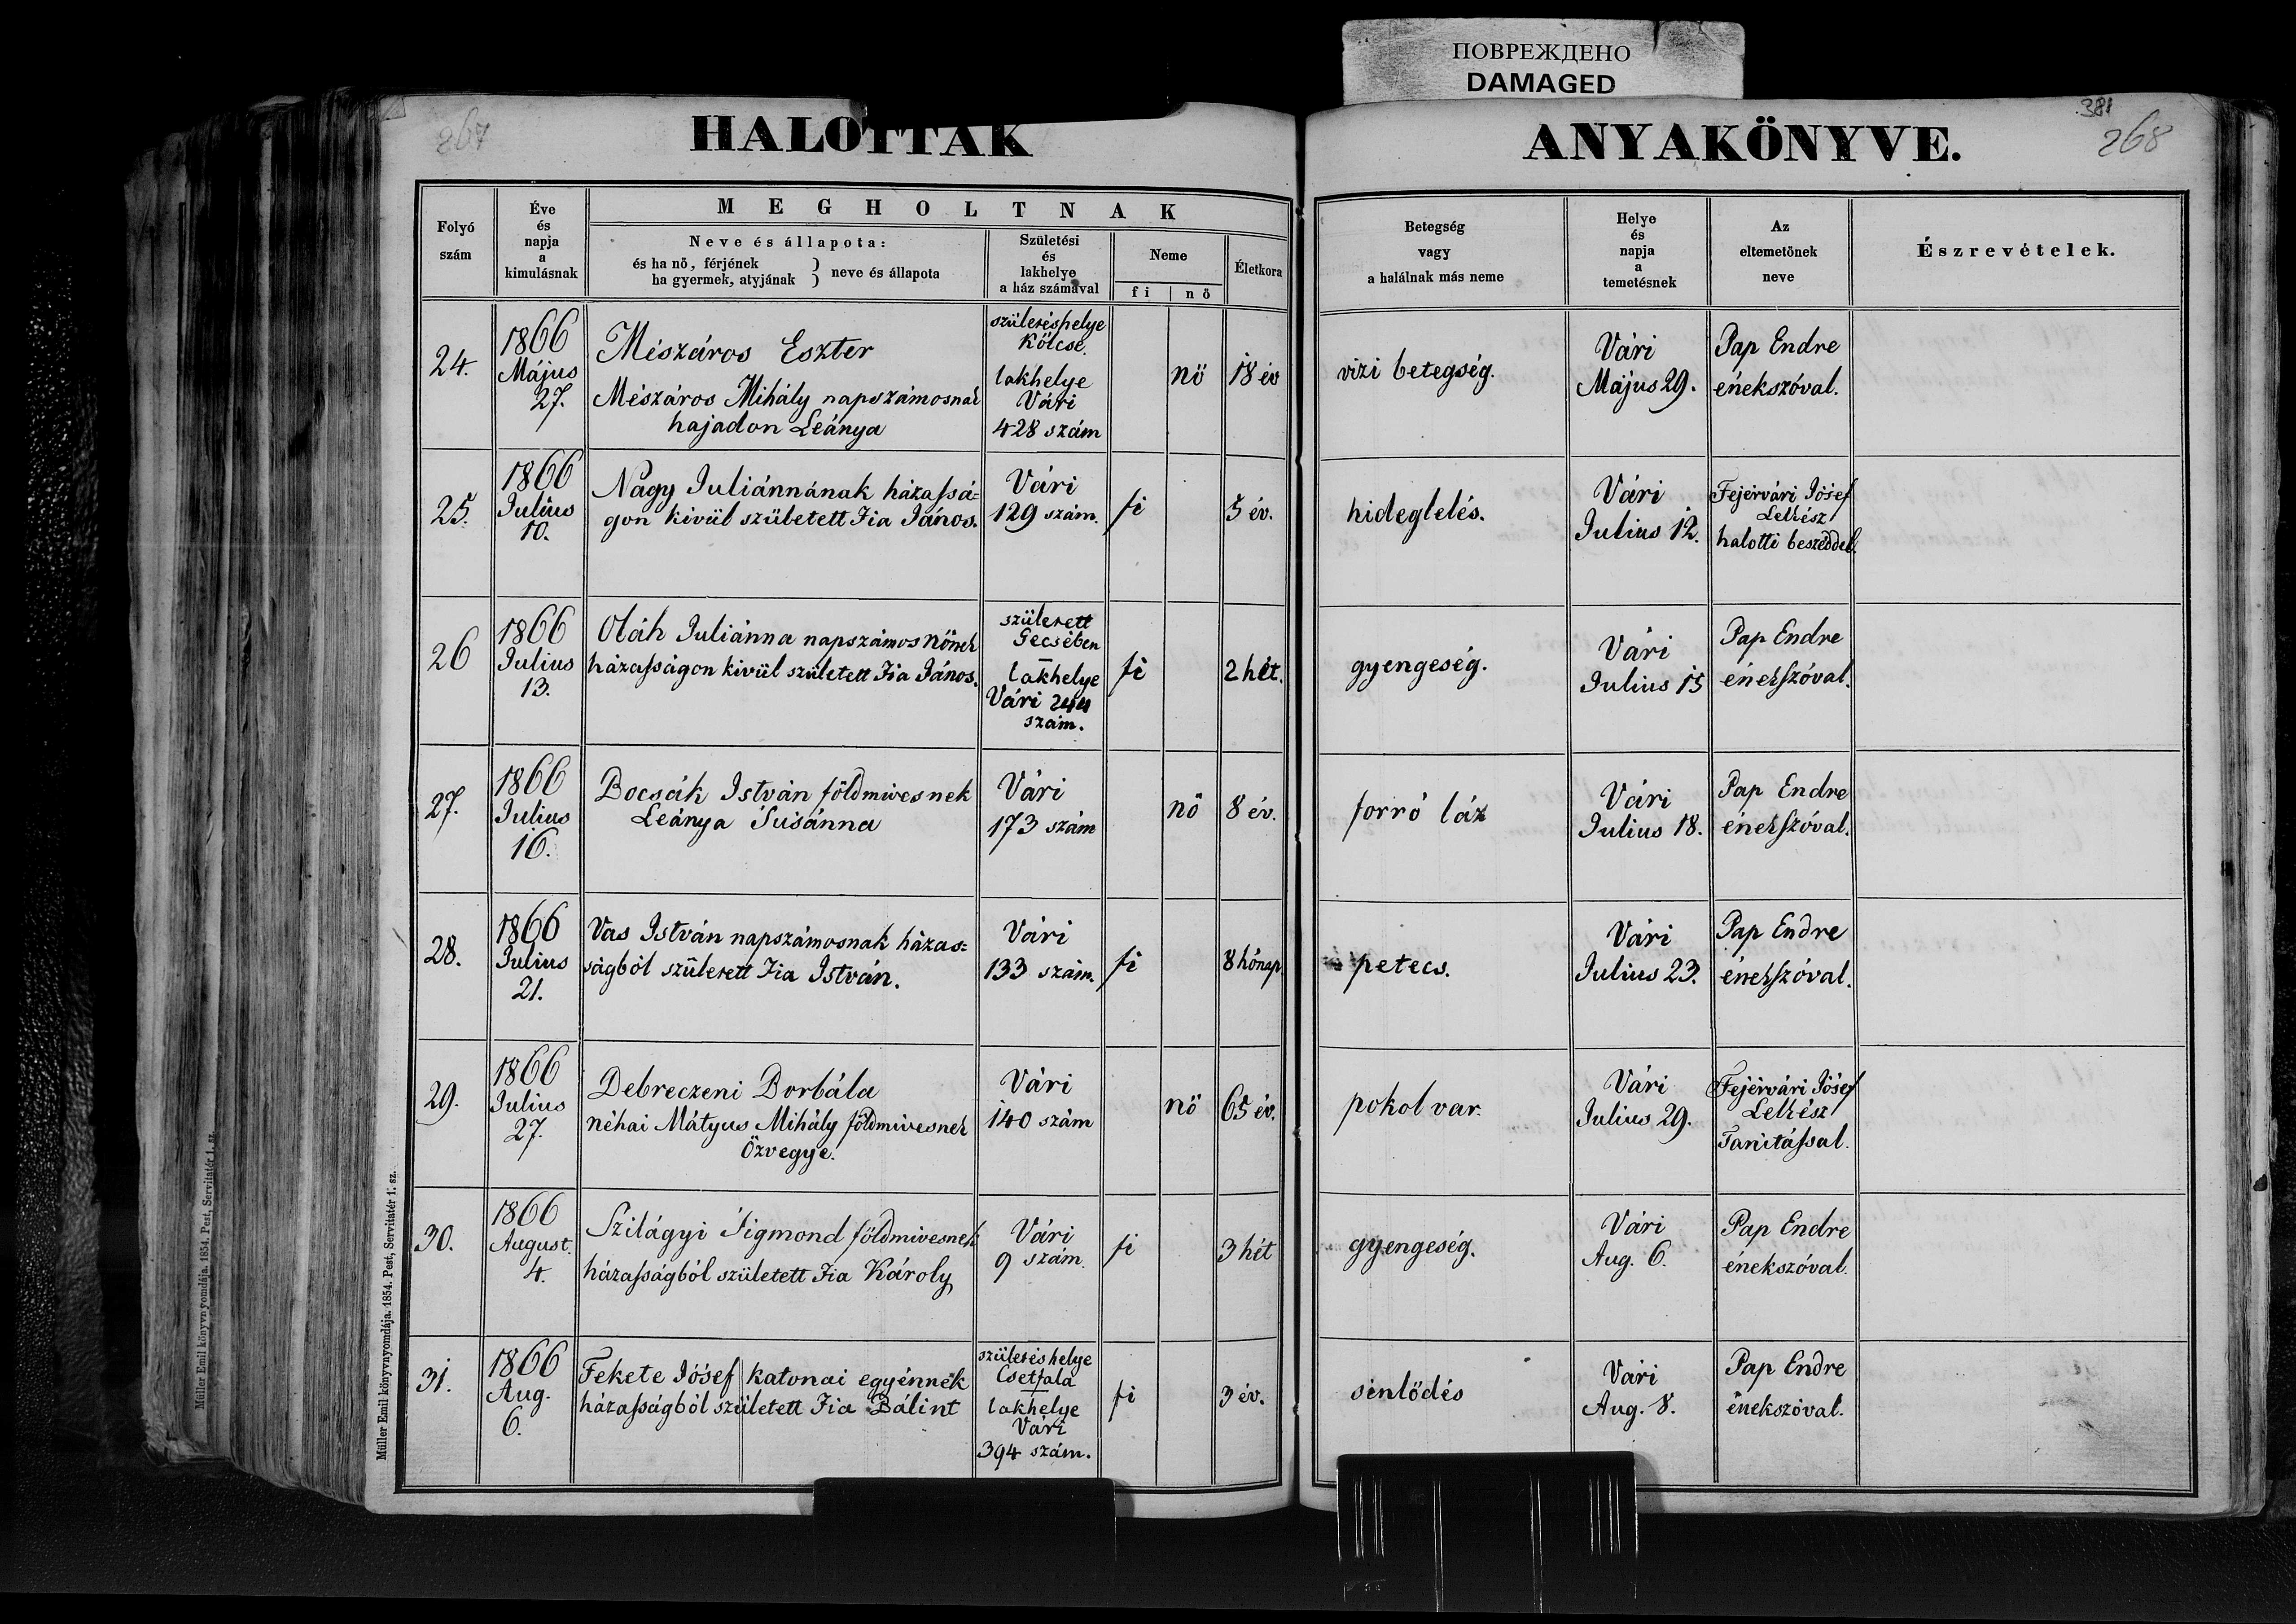 ПОВРЕЖДЕНО
DAMAGED
267
HALOTTAK
ANYAKÖNYVE.
381
268
Folyó
szám
Éve
és
napja
a
kimulásnak
MEGHOLTNAK
Neve és állapota:
és ha nő, férjének
ha gyermek, atyjának
} neve és állapota
Születési
és
lakhelye
a ház számával
Neme
fi | nő
Életkora
Betegség
vagy
a halálnak más neme
Helye
és
napja
a
temetésnek
Az
eltemetőnek
neve
Észrevételek.
24.
1866
Május
27.
Mészáros Eszter
Mészáros Mihály napszámosnak
hajadon Leánya
születéshelye
Kölcse.
lakhelye
Vári
428 szám
nö
18 év
vizi betegség.
Vári
Május 29.
Pap Endre
énekszóval.
25.
1866
Julius
10.
Nagy Juliánnának házassá-
gon kivül született Fia János.
Vári
129 szám.
fi
5 év.
hideglelés.
Vári
Julius 12.
Fejérvári Jósef
Lelkész
halotti beszéddel.
26
1866
Julius
13.
Oláh Juliánna napszámos nőnek
házasságon kivül született Fia János.
született
Gecsében
lakhelye
Vári 244
szám.
fi
2 hét.
gyengeség.
Vári
Julius 15
Pap Endre
énekszóval.
27.
1866
Julius
16.
Bocsák István földmivesnek
Leánya Susánna
Vári
173 szám
nő
8 év.
forró láz
Vári
Julius 18.
Pap Endre
énekszóval.
28.
1866
Julius
21.
Vas István napszámosnak házas=
ságból született Fia István.
Vári
133 szám.
fi
8 hónap
petecs.
Vári
Julius 23.
Pap Endre
énekszóval.
29.
1866
Julius
27.
Debreczeni Borbála
néhai Mátyus Mihály földmivesnek
Özvegye.
Vári
140 szám
nő
65 év.
pokol var.
Vári
Julius 29.
Fejérvári Jósef
Lelkész
Tanitással.
30.
1866
August.
4.
Szilágyi Sigmond földmivesnek
házasságból született Fia Károly
Vári
9 szám.
fi
3 hét
gyengeség.
Vári
Aug. 6.
Pap Endre
énekszóval.
31.
1866
Aug.
6.
Fekete Jósef katonai egyénnek
házasságból született Fia Bálint
születéshelye
Csetfala
lakhelye
Vári
394 szám.
fi
3 év.
sinlödés
Vári
Aug. 8.
Pap Endre
énekszóval.
Müller Emil könyvnyomdája. 1854. Pest, Servitatér 1. sz.
Müller Emil könyvnyomdája. 1854. Pest, Servitatér 1. sz.